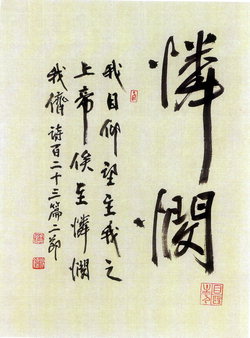 憐憫
我目仰望主我之
上帝俟至憐憫
我儕 诗百二十三篇二节